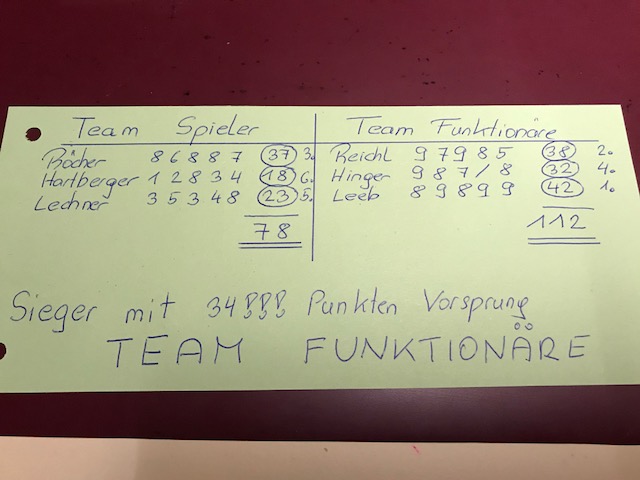 Team Spieler
Böcher 8 6 8 8 7 37 3.
Hartberger 1 2 8 3 4 18 6.
Lechner 3 5 3 4 8 23 5.
78
Team Funktionäre
Reichl 9 7 9 8 5 38 2.
Hinger 9 8 7 / 8 32 4.
Leeb 8 9 8 9 9 42 1.
112
Sieger mit 34!!! Punkten Vorsprung
TEAM FUNKTIONÄRE